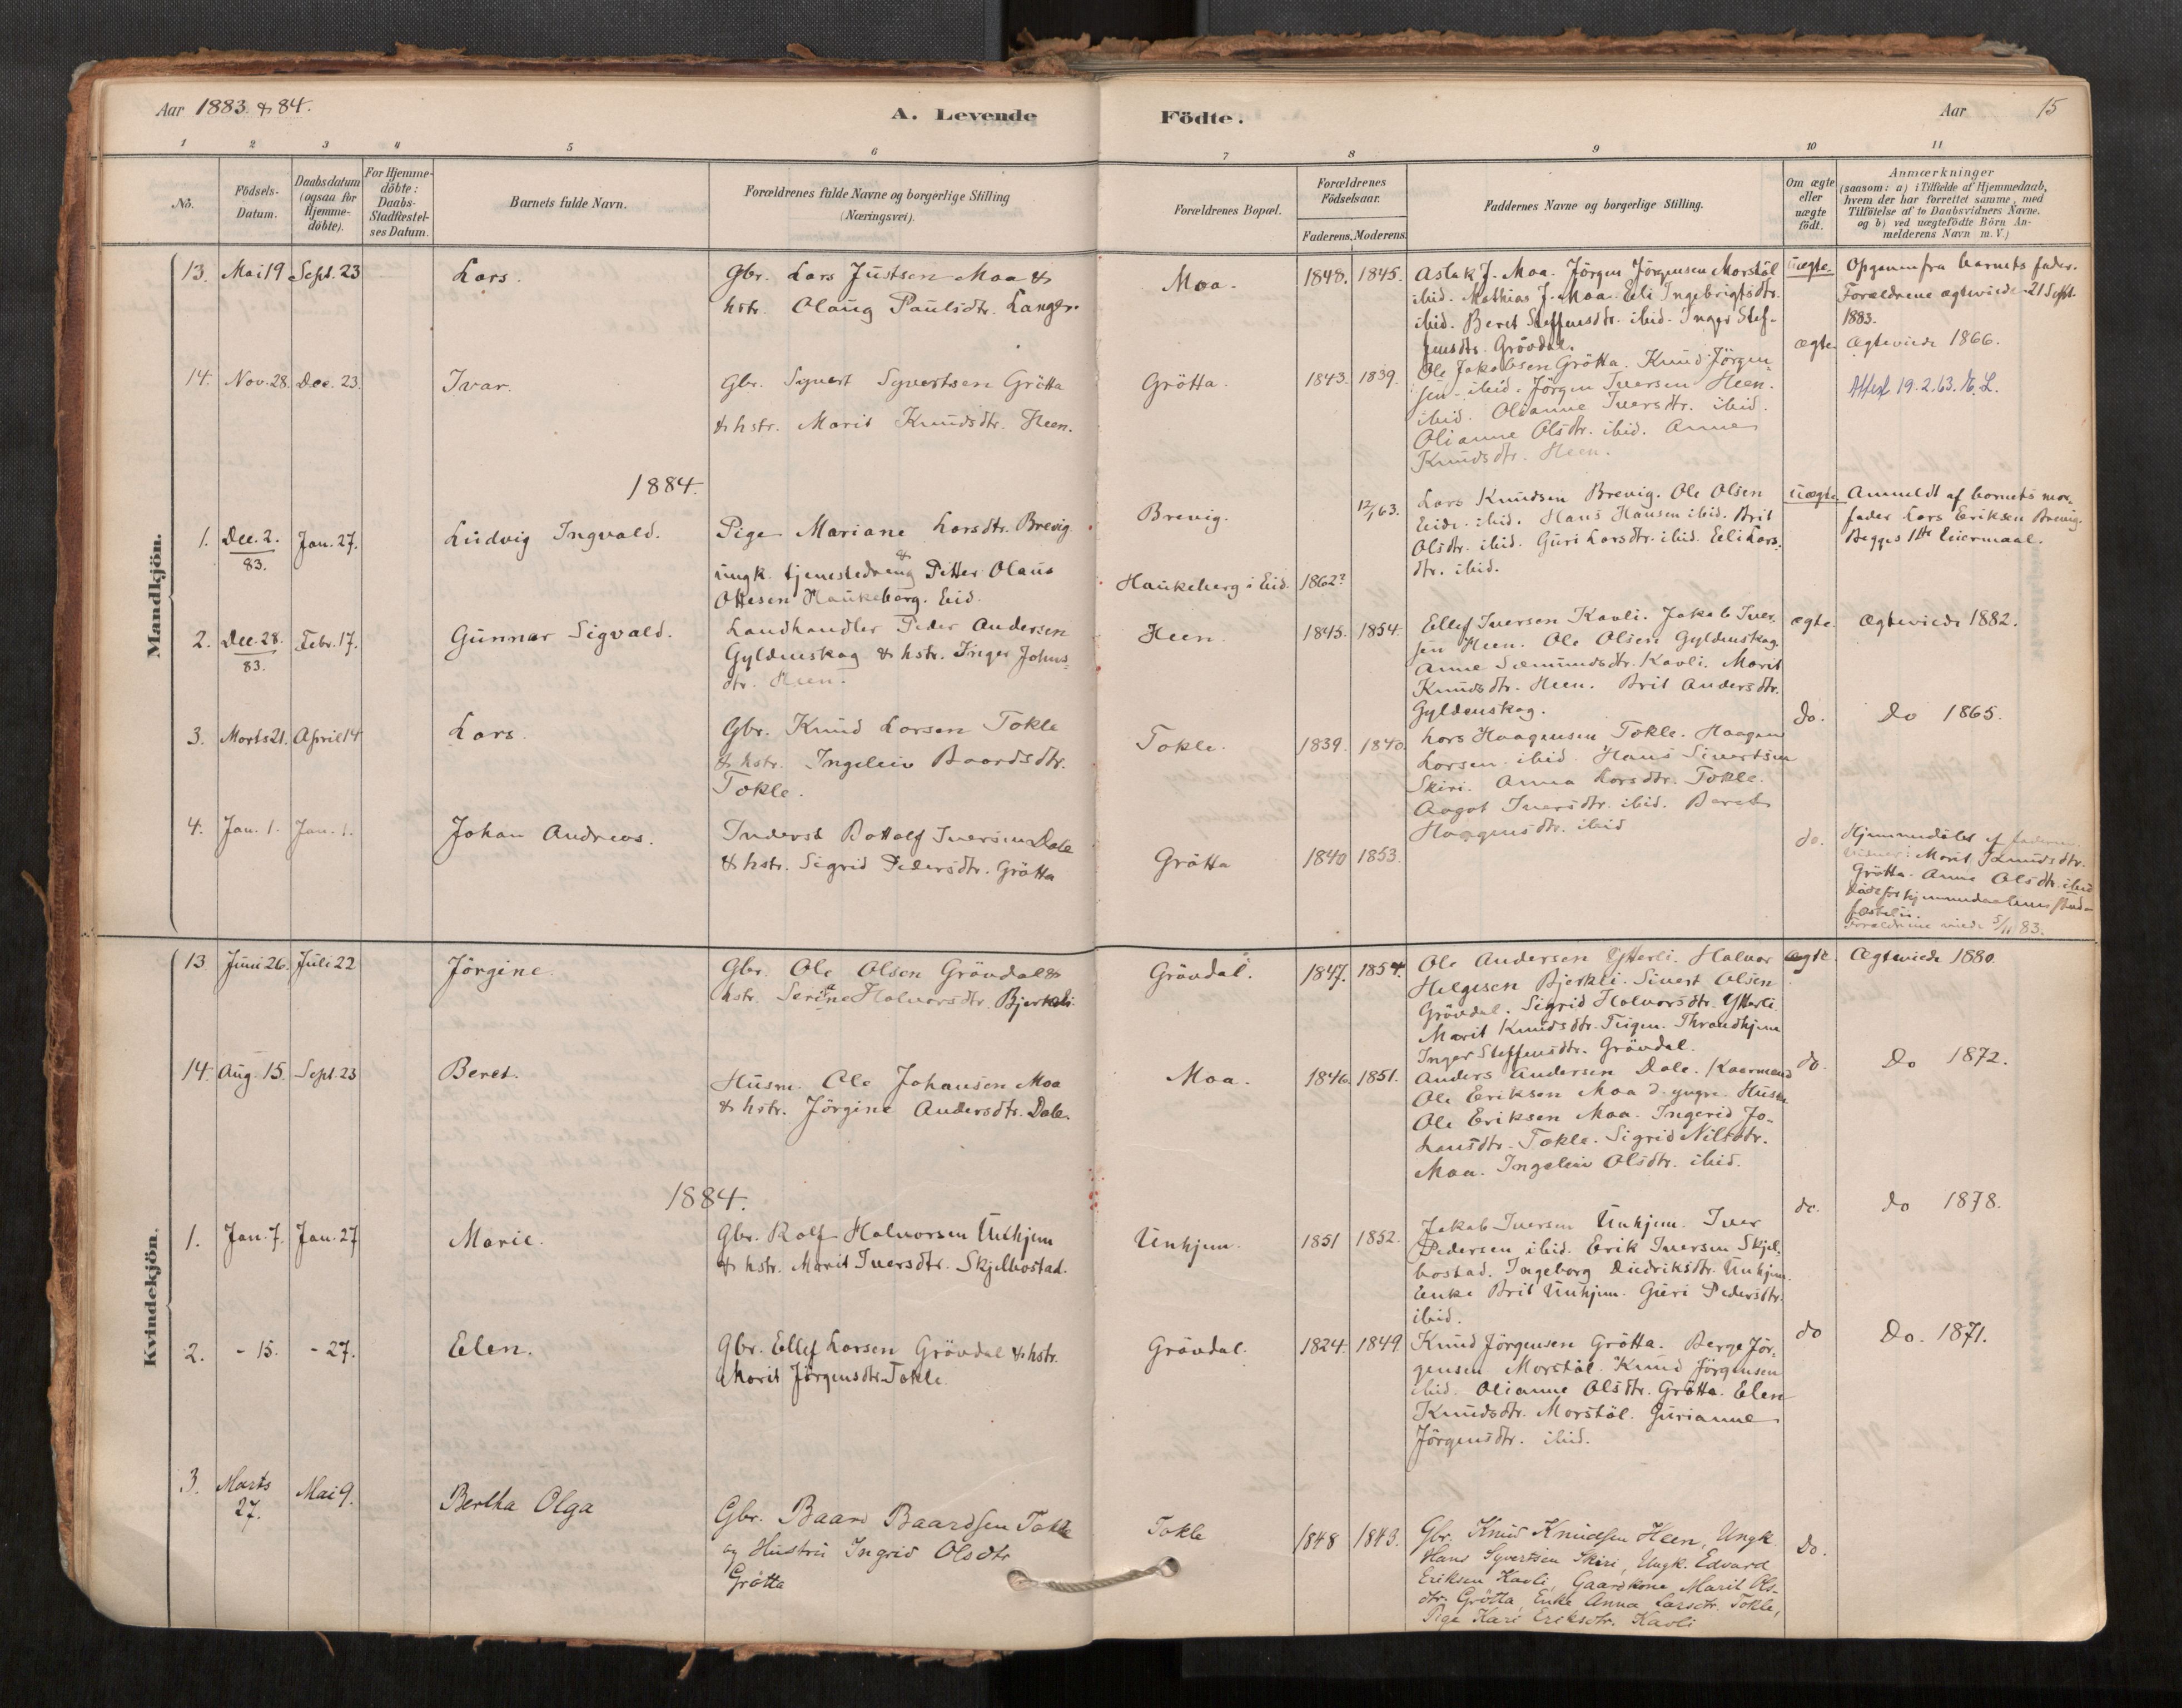 Aar 1883 & 84.
A. Levende
Födte.
Aar
15
1 2 3 4 5 6 7 8 9 10 11
No.
Födsels-
Datum.
Daabsdatum
(ogsaa for
Hjemme-
döbte).
For Hjemme-
döbte:
Daabs-
Stadfæstel-
ses Datum.
Barnets fulde Navn.
Forældrenes fulde Navne og borgerlige Stilling
(Næringsvei).
Forældrenes Bopæl.
Forældrenes
Födselsaar.
Faderens. Moderens.
Faddernes Navne og borgerlige Stilling.
Om ægte
eller
uægte
födt.
Anmærkninger
(saasom: a) i Tilfælde af Hjemmedaab,
hvem der har forrettet samme, med
Tilföielse af to Daabsvidners Navne,
og b) ved uægtefödte Börn An-
melderens Navn m. V.)
Mandkjön.
13. Mai 19 Sept. 23
Lars.
Gbr. Lars Justsen Moa &
hstr. Olaug Paulsdtr. Langs.
Moa.
1848. 1845.
Aslak J. Moa. Jörgen Jörgensen Morstöl
ibid. Mathias J. Moa. Eli Ingebrigtsdtr.
ibid. Beret Steffensdtr. ibid. Inger Stef-
fensdtr. Grövdal.
uægte.
Opgaven fra barnets fader.
Forældrene ægteviede 21 Sept.
1883.
14. Nov. 28. Dec. 23.
Ivar.
Gbr. Syvert Syvertsen Grötta
& hstr. Marit Knudsdtr. Heen.
Grötta.
1843. 1839.
Ole Jakobsen Grötta. Knud Jörgen-
sen ibid. Jörgen Iversen Heen.
ibid. Olianne Iversdtr. ibid.
Olianne Olsdtr. ibid. Anne
Knudsdtr. Heen.
ægte.
Ægteviede 1866.
Attest 19.2.63. K. L.
1884.
1. Dec. 2.
83.
Jan. 27.
Ludvig Ingvald.
Pige Mariane Larsdtr. Brevig
&
ungk. tjenestedreng Petter Olaus
Ottesen Haukeberg. Eid.
Brevig.
Haukeberg i Eid.
1862? 12/1 63.
Lars Knudsen Brevig. Ole Olsen
Eide. ibid. Hans Hansen ibid. Brit
Olsdtr. ibid. Guri Larsdtr. ibid. Eeli Lars-
dtr. ibid.
uægte.
Anmeldt af barnets mor-
fader Lars Eriksen Brevig.
Begges 1ste Leiermaal.
2. Dec. 28.
83.
Febr. 17.
Gunnar Sigvald.
Landhandler Peder Andersen
Gyldenskag & hstr. Inger Johns-
dtr. Heen.
Heen.
1845. 1854.
Ellef Iversen Kavli. Jakob Iver-
sen Heen. Ole Olsen Gyldenskag.
Anne Sæmundsdtr. Kavli. Marit
Knudsdtr. Heen. Brit Andersdtr.
Gyldenskag.
ægte.
Ægteviede 1882.
3. Marts 21. April 14
Lars.
Gbr. Knud Larsen Tokle
& hstr. Ingeleiv Baardsdtr.
Tokle.
Tokle.
1839. 1840.
Lars Haagensen Tokle. Haagen
Larsen ibid. Hans Sivertsen
Skiri. Anna Larsdtr. Tokle.
Aagot Iversdtr. ibid. Beret
Haagensdtr. ibid
do.
Do 1865.
4. Jan. 1. Jan. 1.
Johan Andreas.
Inderst Bottolf Iversen Dale
& hstr. Sigrid Pedersdtr. Grötta
Grötta
1840 1853.
do.
Hjemmedöbt af faderen
vidner: Marit Knudsdtr.
Grötta. Anne Olsdtr. ibid
död för hjemmedaabens stad-
fæstelse.
Forældrene viede 5/11 83.
Kvindekjön.
13 Juni 26. Juli 22
Jörgine
Gbr. Ole Olsen Grövdal &
hstr. Serine Halvorsdtr. Bjerkeli
Grövdal.
1847. 1854.
Ole Andersen Ytterli. Halvor
Helgesen Bjerkli. Sivert Olsen
Grövdal. Sigrid Halvorsdtr. Ytterli
Marit Knudsdtr. Teigen. Thrandhjem
Inger Steffensdtr. Grövdal.
ægte.
Ægteviede 1880.
14. Aug. 15. Sept. 23
Beret.
Husm. Ole Johansen Moa
& hstr. Jörgine Andersdtr. Dale.
Moa.
1846. 1851.
Anders Andersen Dale. Kaarmand
Ole Eriksen Moa d. yngre. Husm
Ole Eriksen Moa. Ingerid Jo-
hansdtr. Tokle. Sigrid Nilsdtr.
Moa. Ingeleiv Olsdtr. ibid.
do.
Do 1872.
1884.
1. Jan. 7. Jan. 27
Marie.
Gbr. Rolf Halvorsen Unhjem
& hstr. Marit Iversdtr. Skjelbostad.
Unhjem.
1851 1852.
Jakob Iversen Unhjem. Iver
Pedersen ibid. Erik Iversen Skjel-
bostad. Ingeborg Diedriksdtr. Unhjem.
Enke Brit Unhjem. Guri Pedersdtr.
ibid.
do.
do 1878.
2. - 15. - 27.
Elen.
Gbr. Ellef Larsen Grövdal & hstr.
Marit Jörgensdtr. Tokle
Grövdal.
1824. 1849
Knud Jörgensen Grötta. Berge Jör-
gensen Morstöl. Knud Jörgensen
ibid. Olianne Olsdtr. Grötta. Elen
Knudsdtr. Morstöl. Gurianne
Jörgensdtr. ibid.
do
Do. 1871.
3. Marts
27.
Mai 9.
Bertha Olga
Gbr. Baard Baardsen Tokle
og Hustru Ingrid Olsdtr
Grötta
Tokle
1848 1843.
Gbr. Knud Knudsen Heen, Ungk.
Hans Syvertsen Skiri, Ungk. Edvard
Eriksen Kavli, Gaardkone Marit Ols-
dtr. Grötta, Enke Anna Larsdtr. Tokle,
Pige Kari Eriksdtr. Kavli
Do.